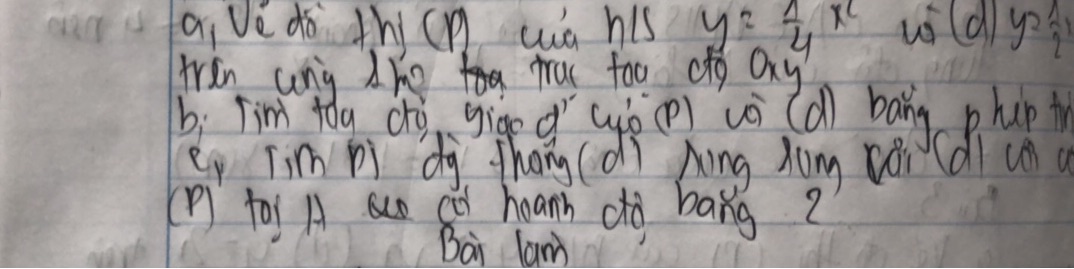 a, Vẽ đồ thị (P) của h/s y = 1/4 x² và (d) y = 1/2
trên cùng 1 hệ trục toạ độ Oxy
b, Tìm tọa độ giao đ' của (P) và (d) bằng phép
c, Tìm pt đg thẳng (d') song song với (d) và
(P) tại A có hoành độ bằng 2
Bài làm